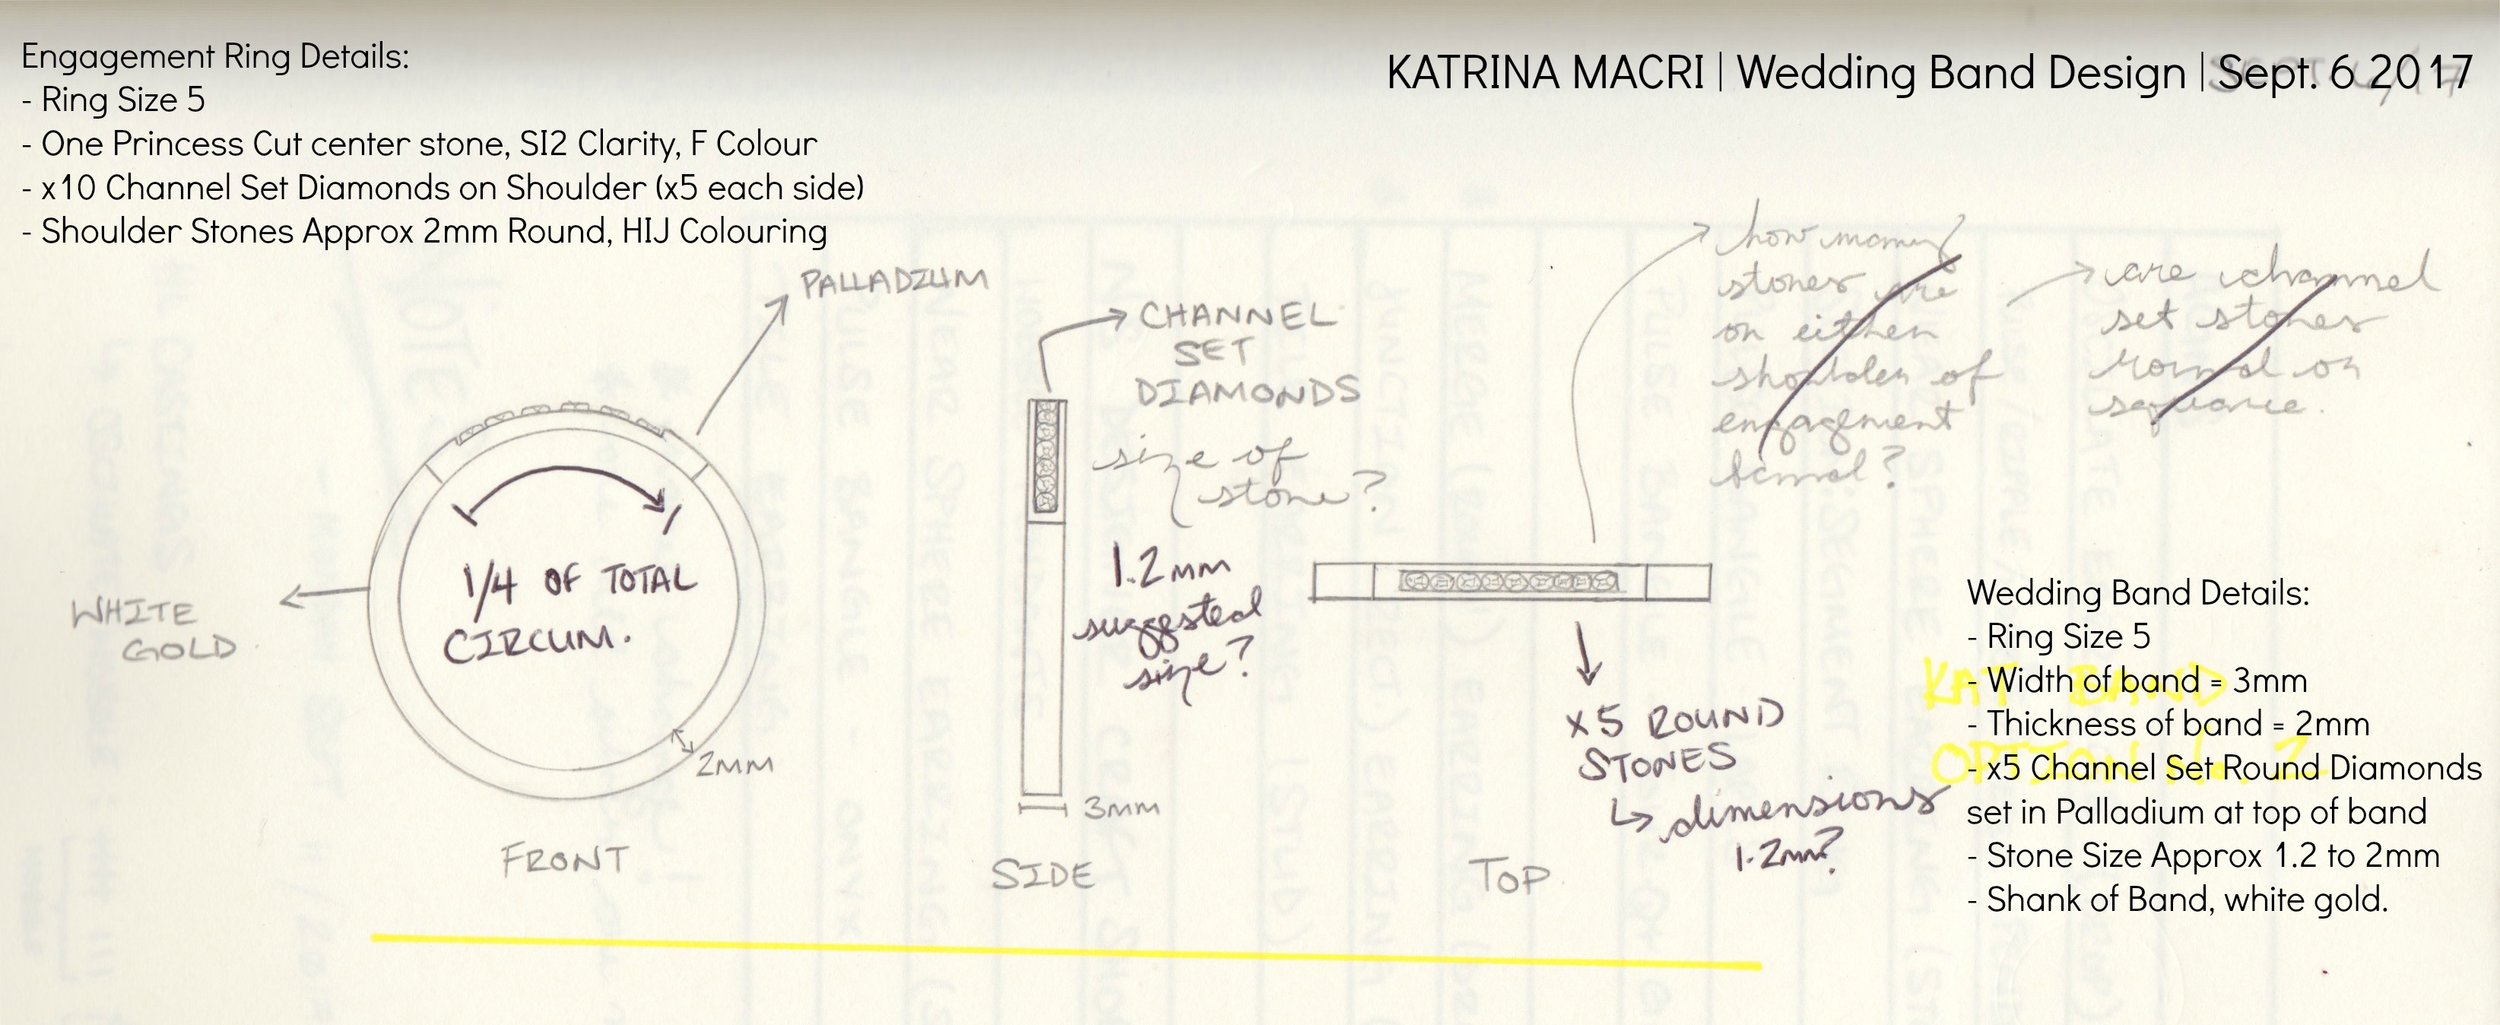 Engagement Ring Details:
- Ring Size 5
- One Princess Cut center stone, SI2 Clarity, F Colour
- x10 Channel Set Diamonds on Shoulder (x5 each side)
- Shoulder Stones Approx 2mm Round, HIJ Colouring
KATRINA MACRI | Wedding Band Design | Sept. 6 2017
PALLADIUM
WHITE
GOLD
1/4 OF TOTAL
CIRCUM.
2MM
FRONT
CHANNEL
SET
DIAMONDS
size of
stone?
1.2mm
suggested
size?
3MM
SIDE
how many
stones are
on either
shoulder of
engagement
band?
are channel
set stones
round or
square.
x5 ROUND
STONES
dimensions
1.2mm?
TOP
KAT BAND
OPTION 2
Wedding Band Details:
- Ring Size 5
- Width of band = 3mm
- Thickness of band = 2mm
- x5 Channel Set Round Diamonds
set in Palladium at top of band
- Stone Size Approx 1.2 to 2mm
- Shank of Band, white gold.